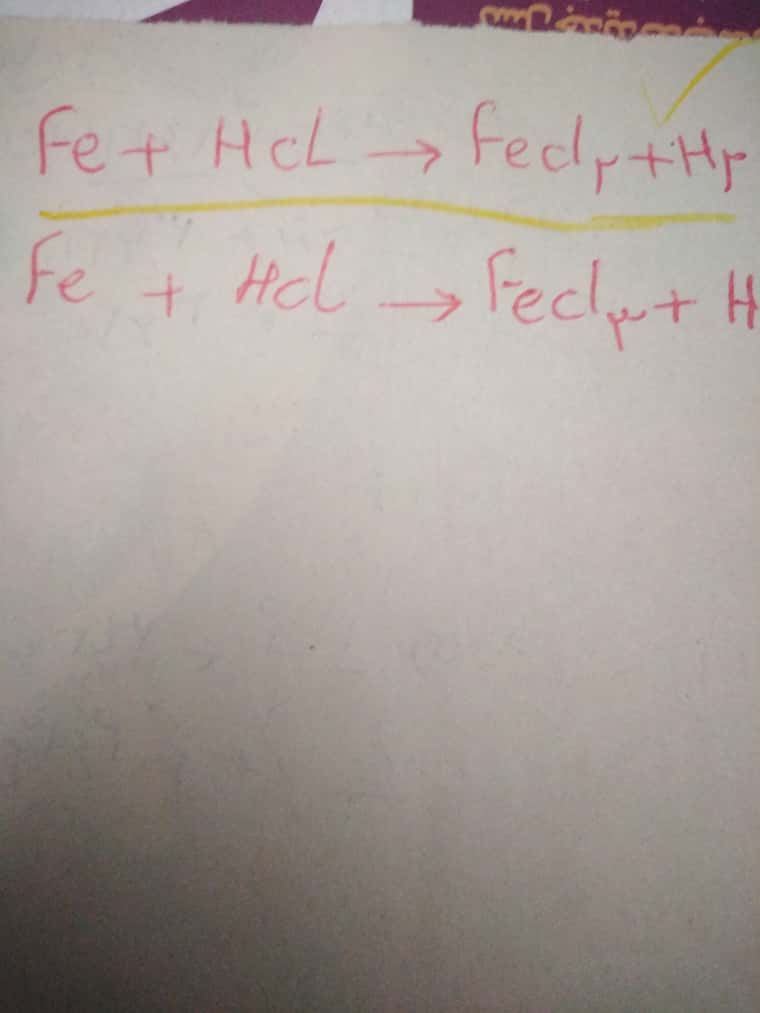 Fe + HCL → FeCl۲ + H۲
Fe + HCL → FeCl۳ + H